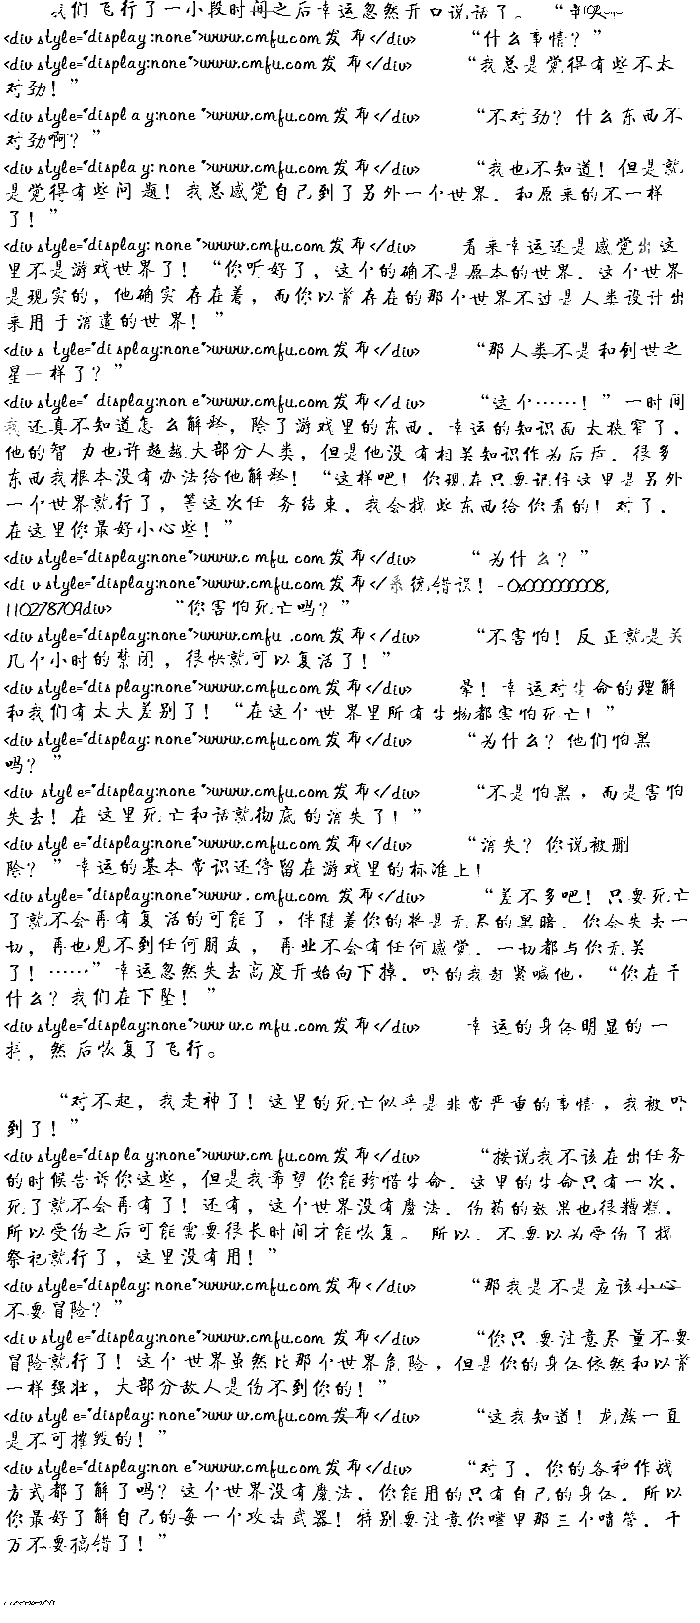 我们飞行了一小段时间之后幸运忽然开口说话了。 “
<div style="display:none">www.cmfu.com发布</div> “什么事情？”
<div style="display:none">www.cmfu.com发布</div> “我总是觉得有些不太
对劲！”
<div style="displ a y:none ">www.cmfu.com发布</div> “不对劲？什么东西不
对劲啊？”
<div style="display: none ">www.cmfu.com发布</div> “我也不知道！但是就
是觉得有些问 题！我总感觉自己到了另外一个世界，和原来的不一样
了！”
<div style="display: none ">www.cmfu.com发布</div> 看来幸运还是感觉出这
里不是游戏世界了！“你听好了，这个的确不是原本的世界，这个世界
是现实的，他确实 存在着，而你以前存在的那个世界不过是人类设计出
来用于消遣的世界！”
<div s tyle="display:none">www.cmfu.com发布</div> “那人类不是和创世之
星一样了？”
<div style=" display:non e">www.cmfu.com发布</d iv> “这个……！”一时间
我还真不知道怎 么解释，除了游戏里的东西，幸运的知识面 太狭窄了，
他的智 力也许超越大部分人类，但是他没有相关知识作为后盾，很多
东西我根本没有办法给他解释！“这样吧！你现在只要记住这里是另外
一个世界就行了，等这次任 务结束，我会找 些东西给你看的！对了，
在这里你最好小心些！”
<div style="display:none">www.c mfu. com发布</div> “为什么？”
<di v style="display:none">www.cmfu.com发布</系统错误！-0x000000008,
110278709div> “你害怕死亡吗？”
<div style="display:none">www.cmfu .com发布</div> “不害怕！反正就是关
几个小时的禁闭，很快就可以复活了！”
<div style="dis play:none">www.cmfu.com发布</div> 晕！幸 运对生命的理解
和我们有太大差别了！“在这个世界里所有生物都害怕死亡！”
<div style="display: none">www.cmfu.com发布</div> “为什么？他们怕黑
吗？”
<div style="display:none ">www.cmfu.com发布</div> “不是怕黑，而是害怕
失去！在这里死亡和话就彻底的消失了！”
<div styl e="display:none">www.cmfu.com发布</div> “消失？你说被删
除？”幸运的基本常识还停留在游戏里的标准上！
<div style="display:none">www.cmfu.com 发布</div> “差不多吧！只要死亡
了就不会再有复 活的可能了，伴随着你的将是无尽的黑暗，你会失去一
切，再也见不到任何朋友，再业不会有任何感觉，一切都与你无关
了！……”幸运忽然失去高度开始向下掉，吓的我赶紧喊他，“你在干
什么？我们在下坠！”
<div style="display:none">www.c mfu.com发布</div> 幸运的身体明显的一
抖，然后恢复了飞行。
“对不起，我走神了！这里的死亡似乎是非常严重的事情，我被吓
到了！”
<div style="displa y:none">www.cm fu.com发布</div> “按说我不该在出任务
的时候告诉你这些，但是我希望你能珍惜生命，这里的生命只有一次，
死了就不会再有了！还有，这个世界没有魔法，伤药的效果也很糟糕，
所以受伤之后可能需要很长时间才能恢复。所以，不要以为受伤了找
祭祀就行了，这里没有用！”
<div style="display: none">www.cmfu.com发布</div> “那我是不是应该小心
不要冒险？”
<div style="display:none">www.cmfu.com发布</div> “你只要注意尽量不要
冒险就行了！这个世界虽然比那个世界危险，但是你的身体依然和以前
一样强壮，大部分敌人是伤不到你的！”
<div styl e="display: none">www.cmfu.com发布</div> “这我知道！龙族一直
是不可摧毁的！”
<div style="display:non e">www.cmfu.com发布</div> “对了，你的各种作战
方式都了解了吗？这个世界没有魔法，你能用的只有自己的身体，所以
你最好了解自己的每一个攻击武器！特别要注意你嘴里那三个喷管，千
万不要搞错了！”